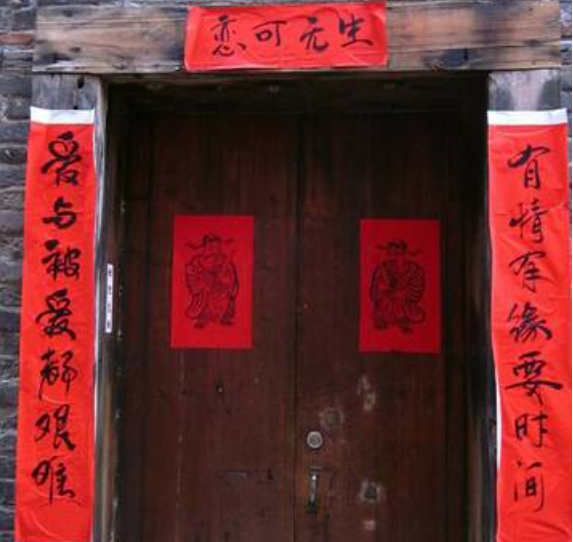 生无可恋
有情有缘要时间
爱与被爱都艰难